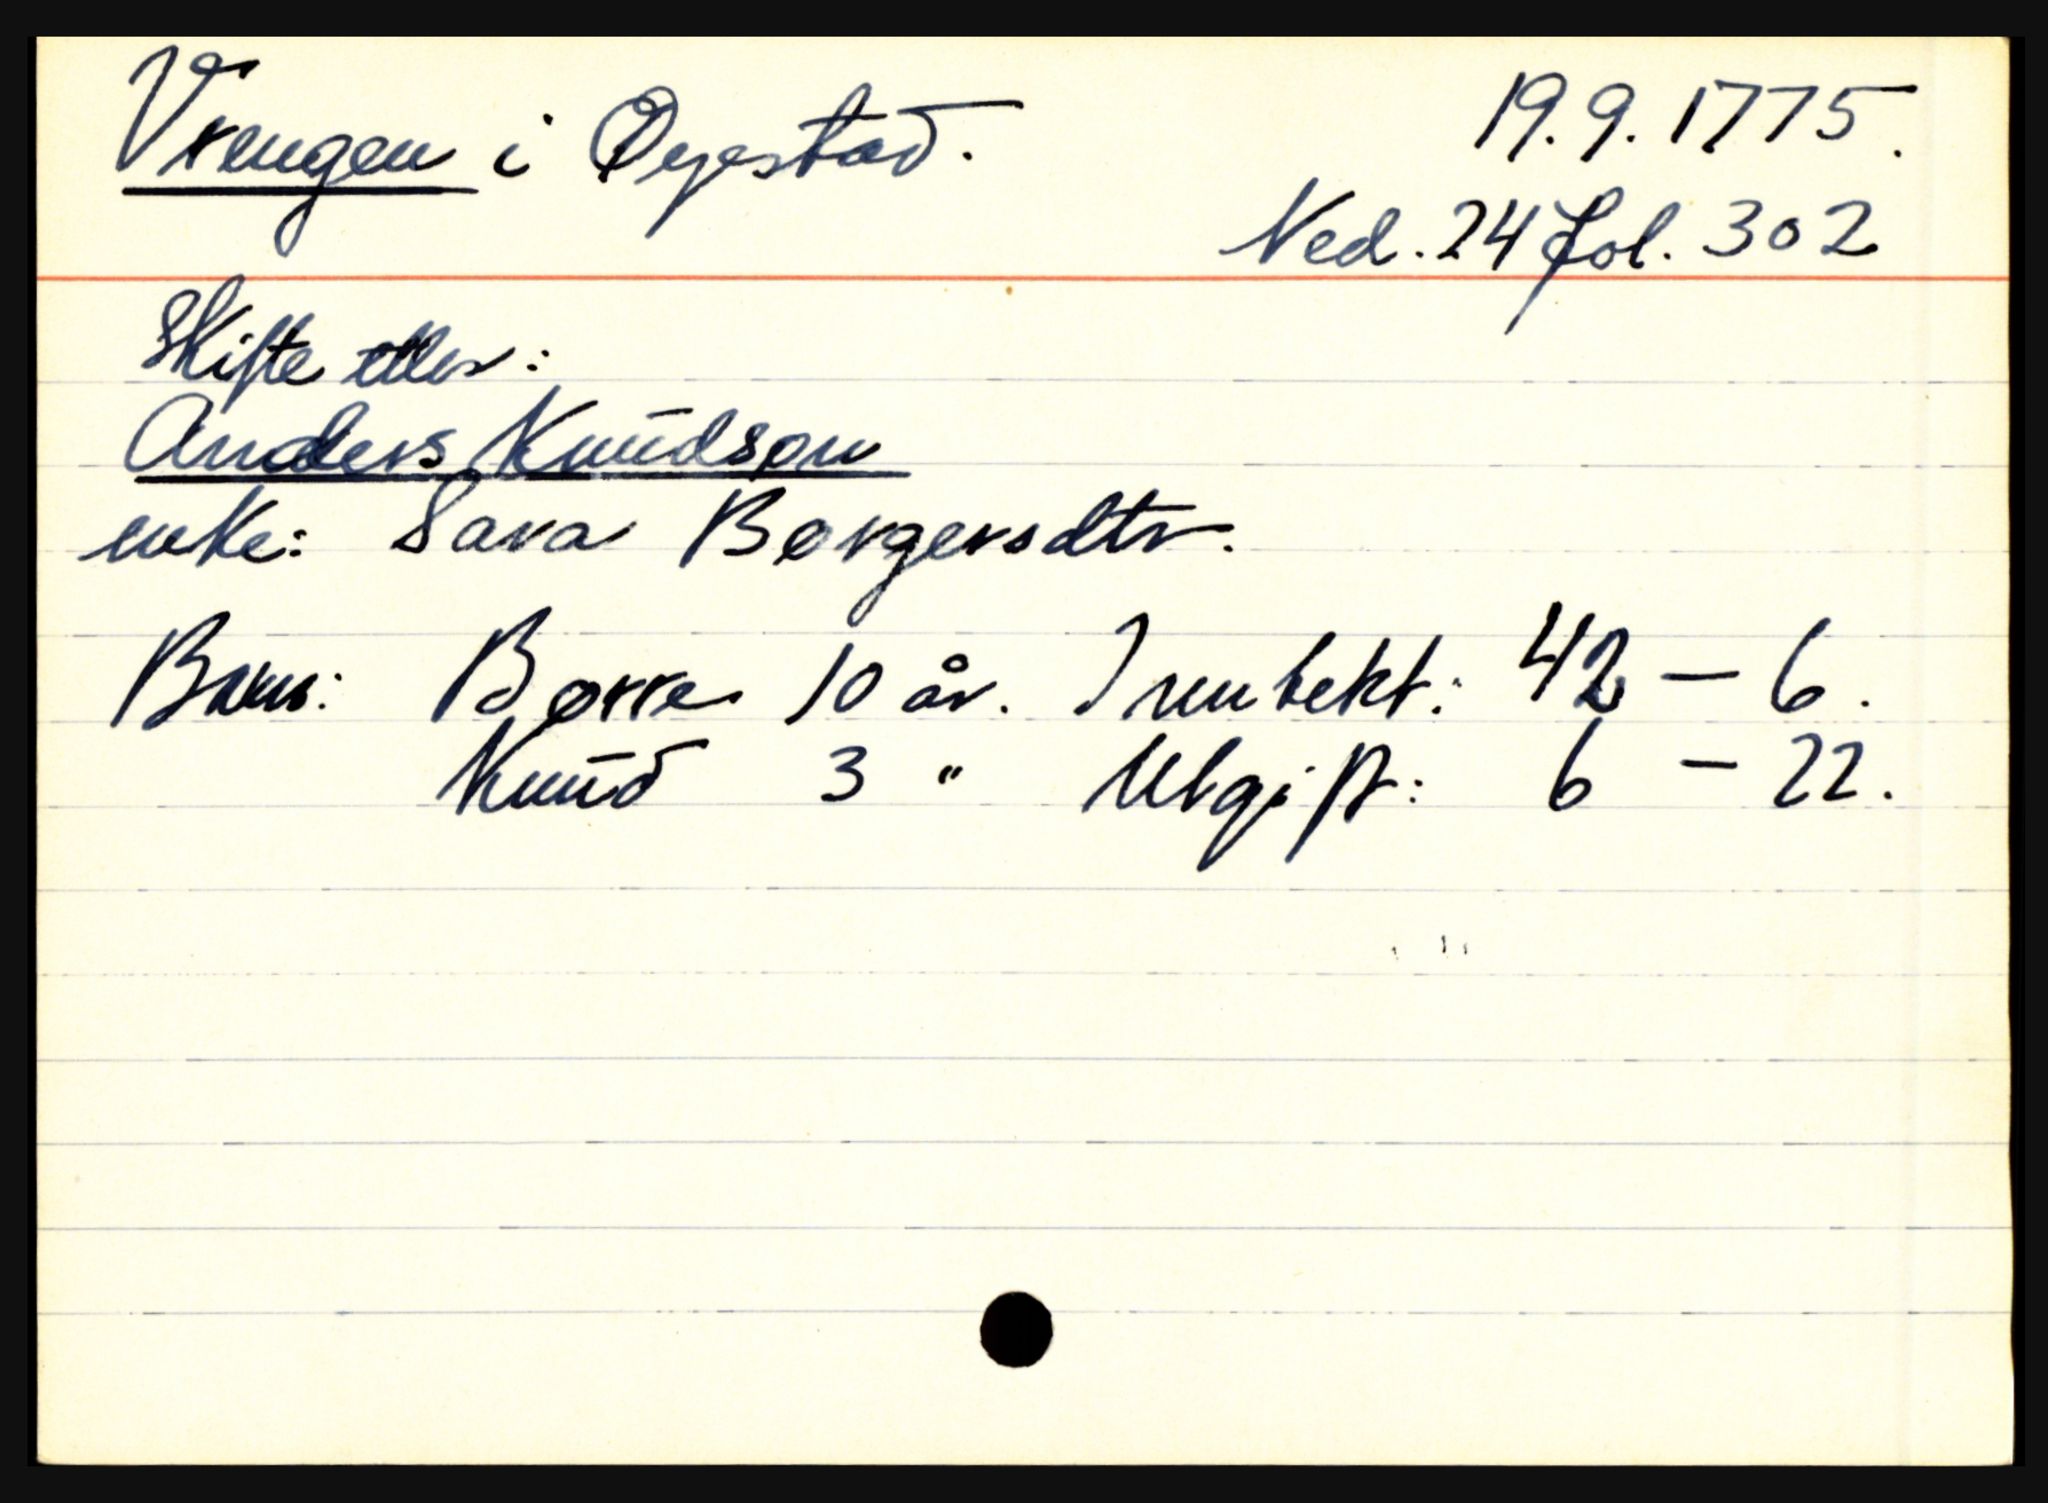 Vrengen i Øyestad.
19.9.1775.
Ned. 24 fol. 302
Skifte etter:
Anders Knudson
enke: Sara Børgersdtr.
Barn: Børre 10 år. Inntekt: 42 – 6.
Knud 3 " Utgift: 6 – 22.